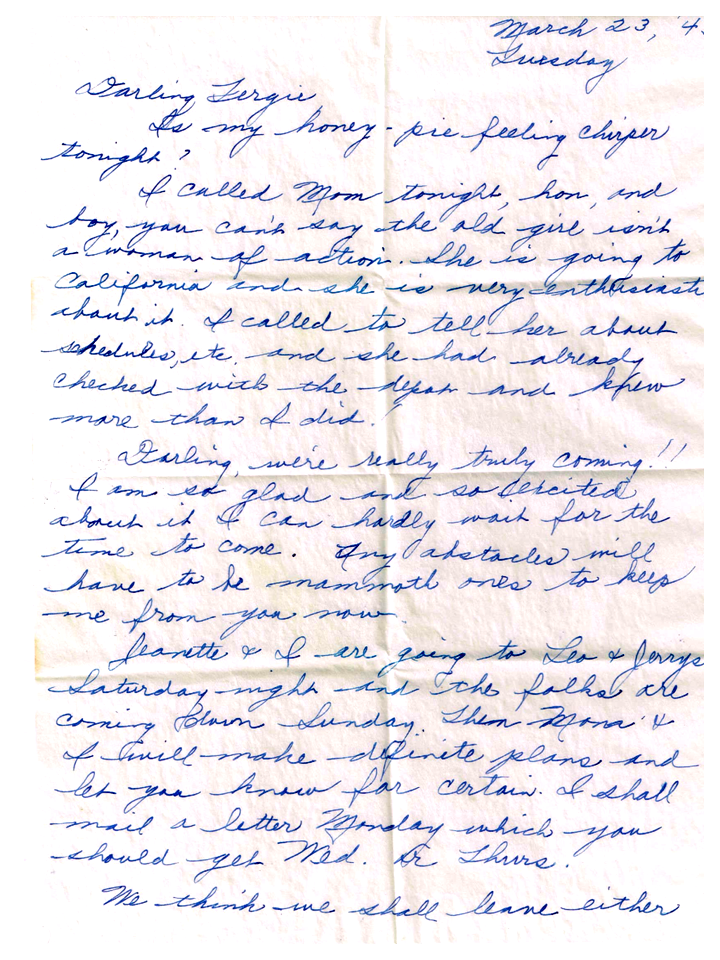 March 23, '4
Tuesday
Darling Fergie
Is my honey-pie feeling chirper
tonight?
I called Mom tonight, hon, and
boy, you can't say the old girl isn't
a woman of action. She is going to
California and she is very enthusiasti
about it. I called to tell her about
schedules, etc. and she had already
checked with the depot and knew
more than I did!
Darling, we're really truly coming!!
I am so glad and so excited
about it I can hardly wait for the
time to come. Any obstacles will
have to be mammoth ones to keep
me from you now.
Jeanette & I are going to Leo & Jerrys
Saturday night and the folks are
coming down Sunday. Then Mona &
I will make definite plans and
let you know for certain. I shall
mail a letter Monday which you
should get Wed. or Thurs.
We think we shall leave either